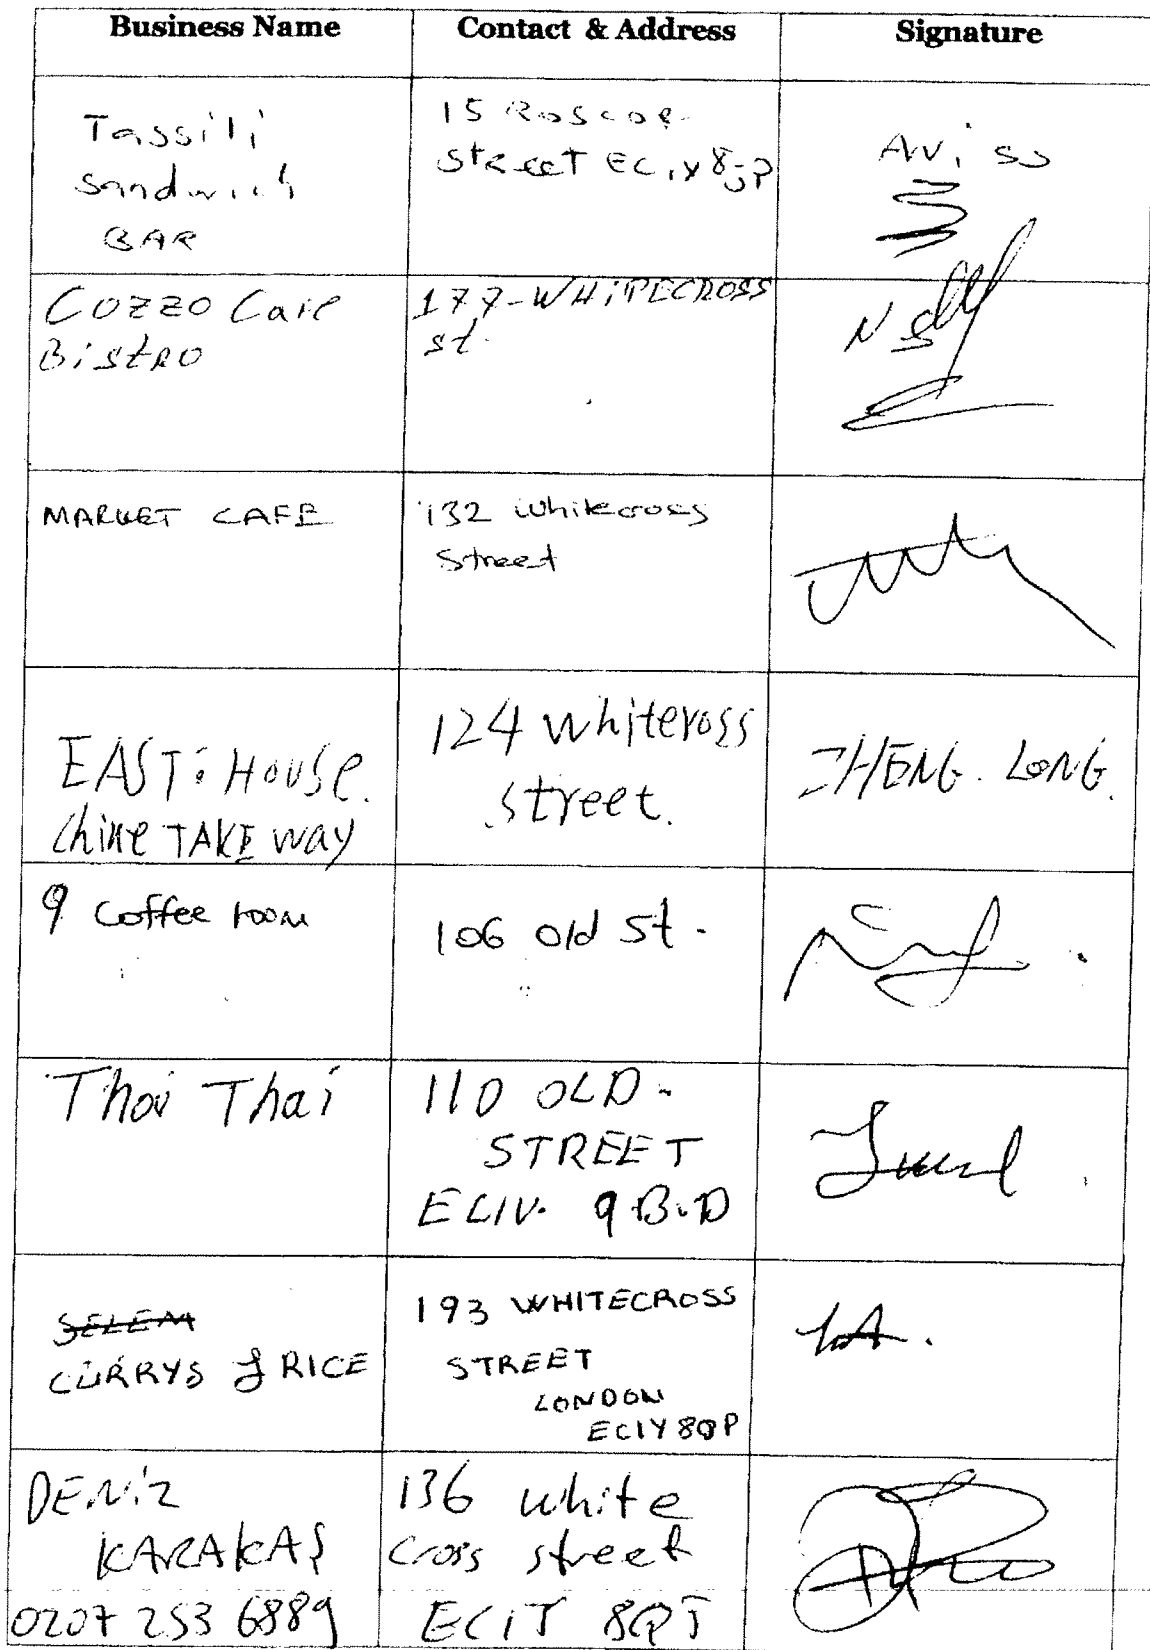 Business Name
Contact & Address
Signature
Tassili
Sandwich
BAR
15 Roscoe
Street EC1Y 8JP
Aviss
COZZO Cafe
BistRO
177-WHITECROSS
st.
MARKET CAFE
132 Whitecross
Street
EAST: HOUSE.
Chine TAKE WAY
124 Whiteross
Street.
ZHENG. LONG.
9 Coffee room
106 Old St.
Thoi Thai
110 OLD-
STREET
EC1V. 9.B.D
SELEM
CURRYS & RICE
193 WHITECROSS
STREET
LONDON
EC1Y 8QP
DENiZ
KARAKAŞ
0207 253 6889
136 White
Cross street
EC1T 8QJ